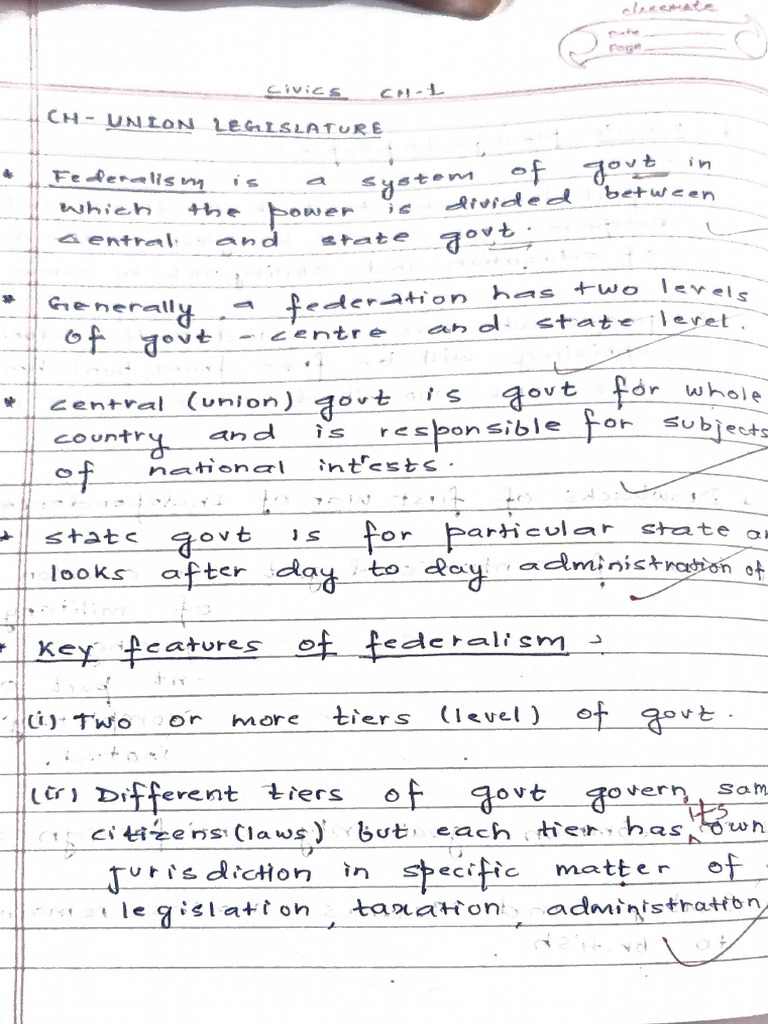 classmate
Date
Page
Civics CH-1
CH- UNION LEGISLATURE
* Federalism is a system of govt in
which the power is divided between
central and state govt.
* Generally a federation has two levels
of govt - centre and state level.
* central (union) govt is govt for whole
country and is responsible for subjects
of national intrests.
* state govt is for particular state
looks after day to day administration of
* Key features of federalism
(i) Two or more tiers (level) of govt.
(ii) Different tiers of govt govern sam
its
citizens (laws) but each tier has own
jurisdiction in specific matter of
legislation, taxation, administration